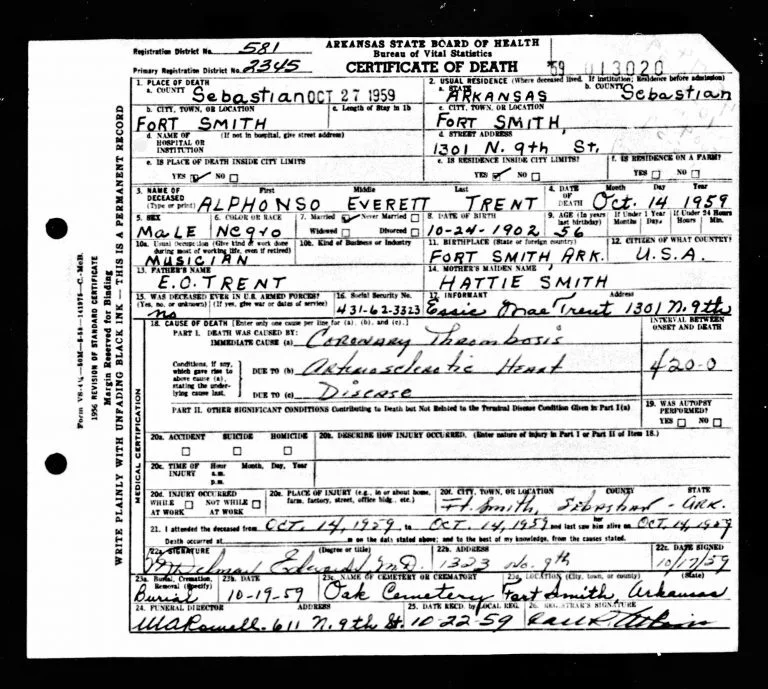 Registration District No. 581 ARKANSAS STATE BOARD OF HEALTH
Bureau of Vital Statistics
Primary Registration District No. 2345 CERTIFICATE OF DEATH 59 013020
1. PLACE OF DEATH 2. USUAL RESIDENCE (Where deceased lived. If institution; Residence before admission)
a. COUNTY Sebastian OCT 27 1959 a. STATE ARKANSAS b. COUNTY Sebastian
b. CITY, TOWN, OR LOCATION c. Length of Stay in 1b c. CITY, TOWN, OR LOCATION
FORT SMITH FORT SMITH,
d. NAME OF HOSPITAL OR INSTITUTION (If not in hospital, give street address) d. STREET ADDRESS
1301 N. 9th St,
e. IS PLACE OF DEATH INSIDE CITY LIMITS e. IS RESIDENCE INSIDE CITY LIMITS? f. IS RESIDENCE ON A FARM?
YES NO YES NO YES NO
3. NAME OF DECEASED (Type or print) First Middle Last 4. DATE OF DEATH Month Day Year
ALPHONSO EVERETT TRENT Oct. 14 1959
5. SEX 6. COLOR OR RACE 7. Married Never Married 8. DATE OF BIRTH 9. AGE (In years last birthday) If Under 1 Year If Under 24 Hours
Widowed Divorced Months Days Hours Min.
MaLE Negro 10-24-1902 56
10a. Usual Occupation (Give kind of work done during most of working life, even if retired) 10b. Kind of Business or Industry 11. BIRTHPLACE (State or foreign country) 12. CITIZEN OF WHAT COUNTRY?
MUSICIAN FORT SMITH ARK. U.S.A.
13. FATHER'S NAME 14. MOTHER'S MAIDEN NAME
E.O. TRENT HATTIE SMITH
15. WAS DECEASED EVER IN U.S. ARMED FORCES? 16. Social Security No. 17. INFORMANT Address
(Yes, no, or unknown) (If yes, give war or dates of service)
No 431-62-3323 Essie Mae Trent 1301 N. 9th
18. CAUSE OF DEATH [Enter only one cause per line for (a), (b), and (c).] INTERVAL BETWEEN ONSET AND DEATH
PART I. DEATH WAS CAUSED BY:
IMMEDIATE CAUSE (a) Coronary Thrombosis
Conditions, if any, which gave rise to above cause (a), stating the underlying cause last.
DUE TO (b) Arteriosclerotic Heart 420-0
DUE TO (c) Disease
PART II. OTHER SIGNIFICANT CONDITIONS Contributing to Death but Not Related to the Terminal Disease Condition Given in Part I(a) 19. WAS AUTOPSY PERFORMED?
YES NO
20a. ACCIDENT SUICIDE HOMICIDE 20b. DESCRIBE HOW INJURY OCCURRED. (Enter nature of injury in Part I or Part II of Item 18.)
20c. TIME OF INJURY Hour Month, Day, Year
a.m.
p.m.
20d. INJURY OCCURRED 20e. PLACE OF INJURY (e.g., in or about home, farm, factory, street, office bldg., etc.) 20f. CITY, TOWN, OR LOCATION COUNTY STATE
WHILE AT WORK NOT WHILE AT WORK Ft. Smith, Sebastian - ARK.
21. I attended the deceased from OCT. 14, 1959 to OCT. 14, 1959 and last saw her him alive on OCT. 14, 1959
Death occurred at m on the date stated above; and to the best of my knowledge, from the causes stated.
22a. SIGNATURE (Degree or title) 22b. ADDRESS 22c. DATE SIGNED
M.D. 1323 No. 9th 10/17/59
23a. Burial, Cremation, Removal (Specify) 23b. DATE 23c. NAME OF CEMETERY OR CREMATORY 23d. LOCATION (City, town, or county) (State)
Burial 10-19-59 Oak Cemetery Fort Smith, Arkansas
24. FUNERAL DIRECTOR ADDRESS 25. DATE RECD. by LOCAL REG. 26. REGISTRAR'S SIGNATURE
611 N. 9th St. 10-22-59
MEDICAL CERTIFICATION
WRITE PLAINLY WITH UNFADING BLACK INK — THIS IS A PERMANENT RECORD
Margin Reserved for Binding
1956 REVISION OF STANDARD CERTIFICATE